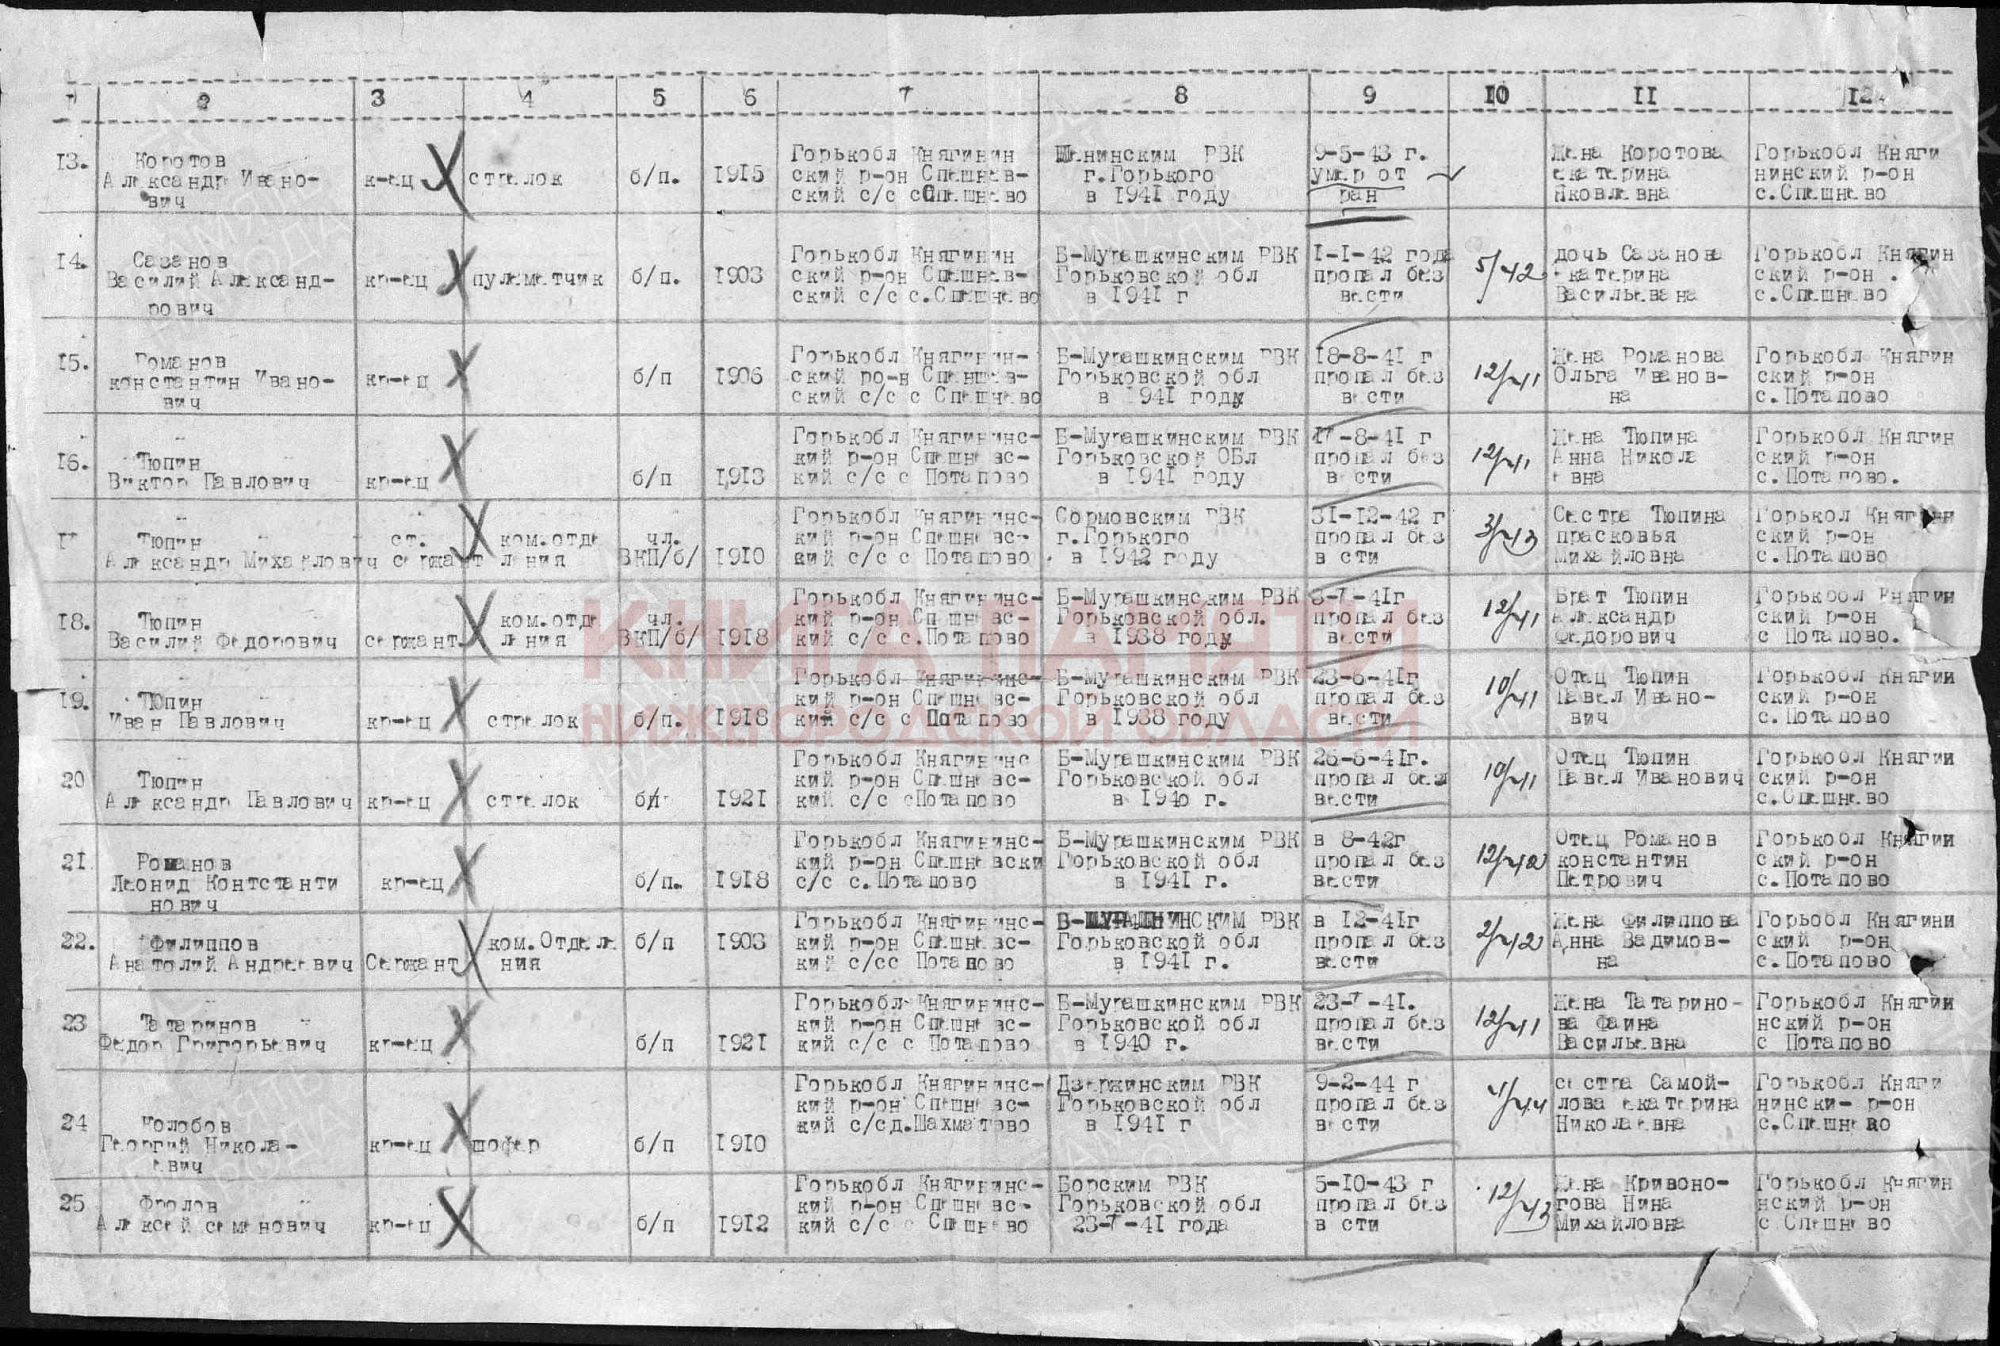 1 2 3 4 5 6 7 8 9 10 11 12
13. Коротов Александр Ивано-вич к-ец стрелок б/п. 1915 Горькобл Княгинин ский р-он Спешнев-ский с/с сСпешнево Ленинским РВК г.Горького в 1941 году 9-5-43 г. умер от ран Жена Коротова екатерина Яковлевна Горькобл Княги нинский р-он с.Спешнево
14. Сазанов Василий Александ-рович кр-ец пулеметчик б/п. 1903 Горькобл Княгинин ский р-он Спешнев-ский с/с с.Спешнево Б-Мурашкинским РВК Горьковской обл в 1941 г 1-1-42 года пропал без вести 5/42 дочь Сазанова катерина Васильевана Горькобл Княгин ский р-он . с.Спешнево
15. Романов константин Ивано-вич кр-ец б/п 1906 Горькобл Княгинин-ский ро-н Спеншев-ский с/с с Спешнево Б-Мурашкинским РВК Горьковской обл в 1941 году 18-8-41 г пропал без вести 12/41 Жена Романова Ольга Иванов-на Горькобл Княгин ский р-он с.Потапово
16. Тюпин Виктор Павлович кр-ец б/п 1913 Горькобл Княгининс-кий р-он Спешневс-кий с/с с Потапово Б-Мурашкинским РВК Горьковской ОБл в 1941 году 17-8-41 г пропал без вести 12/41 Жена Тюпина Анна Никола евна Горькобл Княгин ский р-он с.Потапово.
17 Тюпин Александр Михайлович ст. сержант ком.отде ления чл. ВКП/б/ 1910 Горькобл Княгининс-кий р-он Спешневс-кий с/с с Потапово Сормовским РВК г.Горького в 1942 году 31-12-42 г пропал без вести 3/43 Сестра Тюпина прасковья Михайловна Горькол Княгинин ский р-он с.Потапово
18. Тюпин Василий Федорович сержант ком.отде ления чл. ВКП/б/ 1918 Горькобл Княгининс-кий р-он Спешневс-кий с/с с.Потапово Б-Мурашкинским РВК Горьковской обл. в 1938 году 3-7-41г пропал без вести 12/41 Брат Тюпин Александр Федорович Горькобл Княгин ский р-он с Потапово.
19. Тюпин Иван Павлович кр-ец стрелок б/п. 1918 Горькобл Княгининс-кий р-он Спешневс-кий с/с с Потапово Б-Мурашкинским РВК Горьковской обл в 1938 году 23-6-41г пропал без вести 10/41 Отец Тюпин Павел Ивано-вич Горькобл Княгии ский р-он с.Потапово
20 Тюпин Александр Павлович кр-ец стрелок б/п 1921 Горькобл Княгининс кий р-он Спешневс-кий с/с сПотапово Б-Мурашкинским РВК Горьковской обл в 1940 г. 26-6-41г. пропал без вести 10/41 Отец Тюпин Павел Иванович Горькобл Княгии ский р-он с.Спешнево
21 Романов Леонид Контстанти нович кр-ец б/п. 1918 Горькобл Княгининс-кий р-он Спешневски с/с с.Потапово Б-Мурашкинским РВК Горьковской обл в 1941 г. в 8-42г пропал без вести 12/42 Отец Романов константин Петрович Горькобл Княгии ский р-он с.Потапово
22. Филиппов Анатолий Андреевич Сержант ком.Отделе ния б/п 1903 Горькобл Княгининс-кий р-он Спешневс-кий с/сс Потапово Б-МУРАШКИНСКИМ РВК Горьковской обл в 1941 г. в 12-41г пропал без вести 2/42 Жена Филиппова Анна Вадимов-на Горьобл Княгини ский р-он с.Потапово
23 Татаринов Федор Григорьевич кр-ец б/п 1921 Горькобл Княгининс-кий р-он Спешневс-кий с/с с Потапово Б-Мурашкинским РВК Горьковской обл в 1940 г. 23-7-41. пропал без вести 12/41 Жена Татарино-ва Фаина Васильевна Горькобл Княгии нский р-он с Потапово
24 Колобов Георгий Никола-евич кр-ец шофер б/п 1910 Горькобл Княгининс-кий р-он Спешневс-кий с/сд.Шахматово Дзержинским РВК Горьковской обл в 1941 г 9-2-44 г пропал без вести 4/44 сестра Самой-лова екатерина Николаевна Горькобл Княги нински- р-он с.Спешнево
25 Фролов Алексей семенович кр-ец б/п 1912 Горькобл Княгининс-кий р-он Спешневс-кий с/с с Спешнево Борским РВК Горьковской обл 23-7-41 года 5-10-43 г пропал без вести 12/43 Жена Кривоно-гова Нина Михайловна Горькобл Княгин нский р-он с.Спешнево
КНИГА ПАМЯТИ
НИЖЕГОРОДСКОЙ ОБЛАСТИ